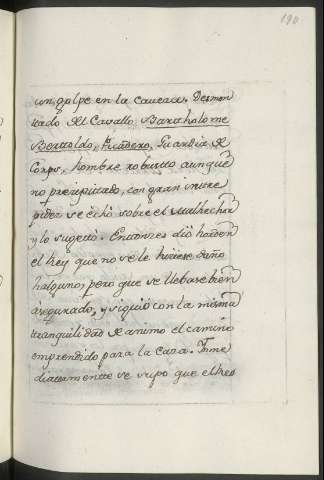 190
un golpe en la caveza. Desmon
tado del Cavallo Bartholome
Bertoldo, Picadero, Guardia de
Corps, hombre robusto aunque
no precipitado, con gran intre
pidez se echó sobre el Malhechor
y lo sugetó. Entonces dió horden
el Rey que no se le hiciese daño
halguno, pero que se llebase bien
asegurado, y siguió con la misma
tranquilidad de animo el camino
emprendido para la Caza. Inme
diatamente se supo que el Reo